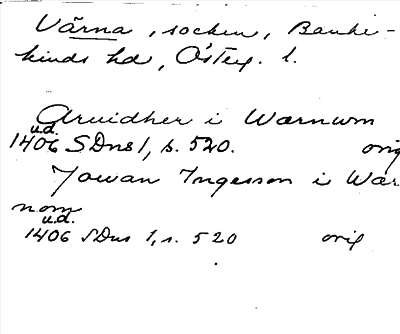 Värna, socken, Banke-
kinds hd, Österg. l.
Aruidher i Wærnum
u.d.
1406 SDns 1, s. 520. orig
Jowan Ingesson i Wær
nom
u.d.
1406 SDns 1, s. 520 orig